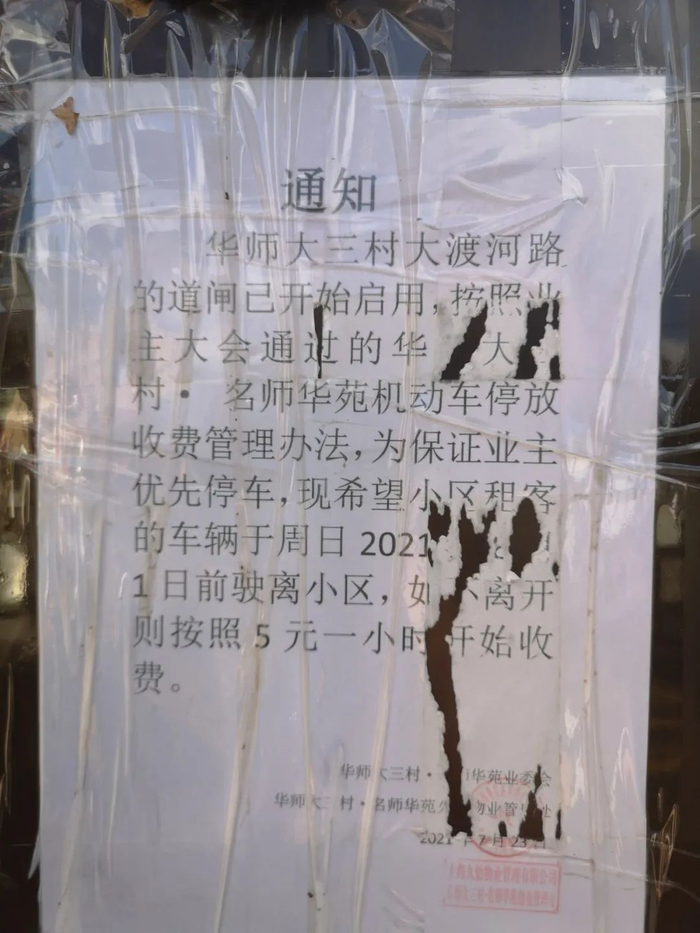 通知
华师大三村大渡河路
的道闸已开始启用，按照业
主大会通过的华 大
村· 名师华苑机动车停放
收费管理办法，为保证业主
优先停车，现希望小区租客
的车辆于周日 2021
1 日前驶离小区，如不离开
则按照 5 元一小时开始收
费。
华师大三村· 师华苑业委会
华师大三村·名师华苑 物业管理处
2021 年 7 月 23 日